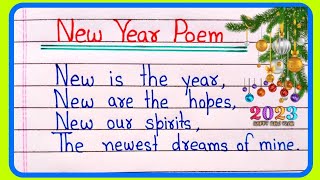 New Year Poem
New is the year,
New are the hopes,
New our spirits,
The newest dreams of mine.
2023
HAPPY NEW YEAR